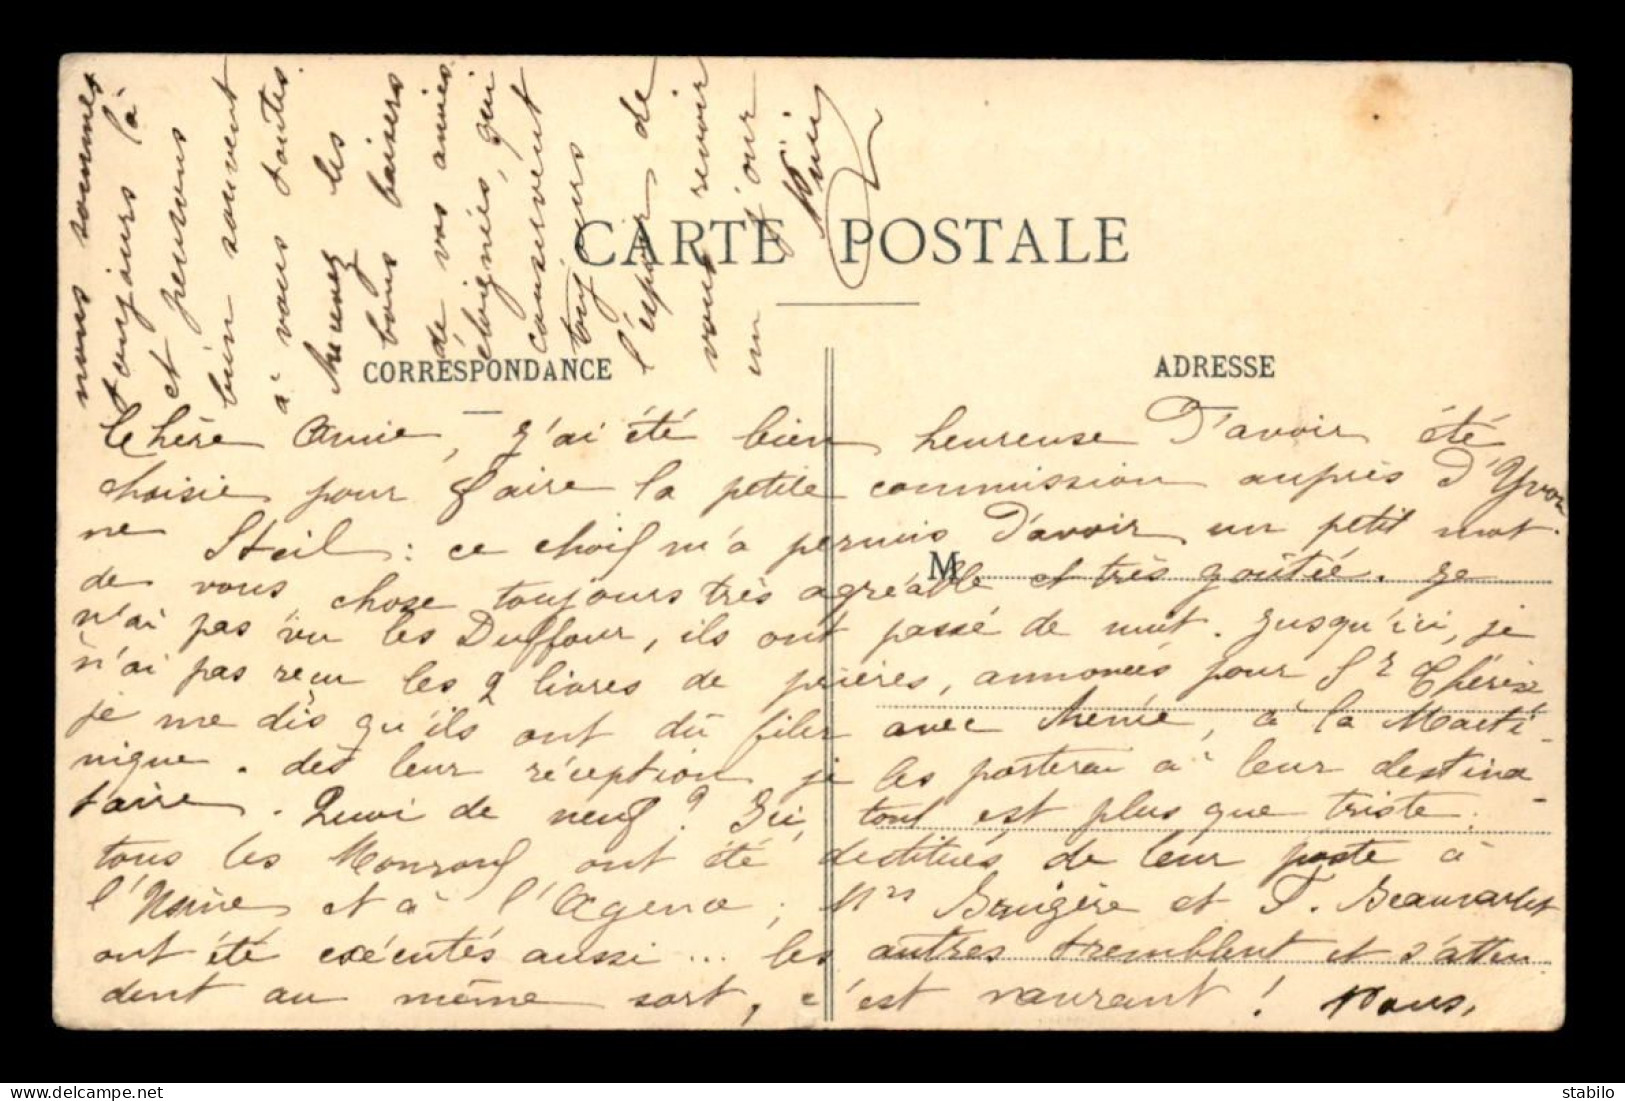 CARTE POSTALE
CORRESPONDANCE
ADRESSE
M
Chère Amie, J'ai été bien heureuse d'avoir été
choisie pour faire la petite commission auprès d'Yvon
ne Steil : ce choix m'a permis d'avoir un petit mot
de vous chose toujours très agréable et très goûtée. Je
n'ai pas vu les Duffour, ils ont passé de nuit. Jusqu'ici, je
n'ai pas reçu les 2 livres de prières, annoncés pour Sr Thérèse
je me dis qu'ils ont dû filer avec Mémé, à la Marti-
nique. dès leur réception je les porterai à leur destina-
taire. Quoi de neuf? Ici, tout est plus que triste.
tous les ont été destitués de leur poste à
l' et à l' ; Mrs Brugère et F. Beauvarlet
ont été exécutés aussi ... les autres tremblent et s'atten
dent au même sort, c'est navrant ! Nous,
nous sommes
toujours là
et pensons
bien souvent
à vous toutes.
Recevez les
bons baisers
de vos amies
éloignées, qui
conservent
toujours
l'espoir de
vous revoir
un jour